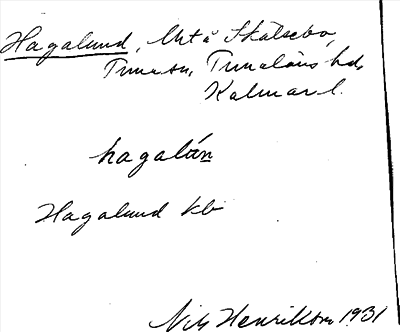 Hagalund, Urt å Skälsebo,
Tuna sn, Tunaläns hd,
Kalmar l.
hagalún
Hagalund kb
Nils Henrikson 1931